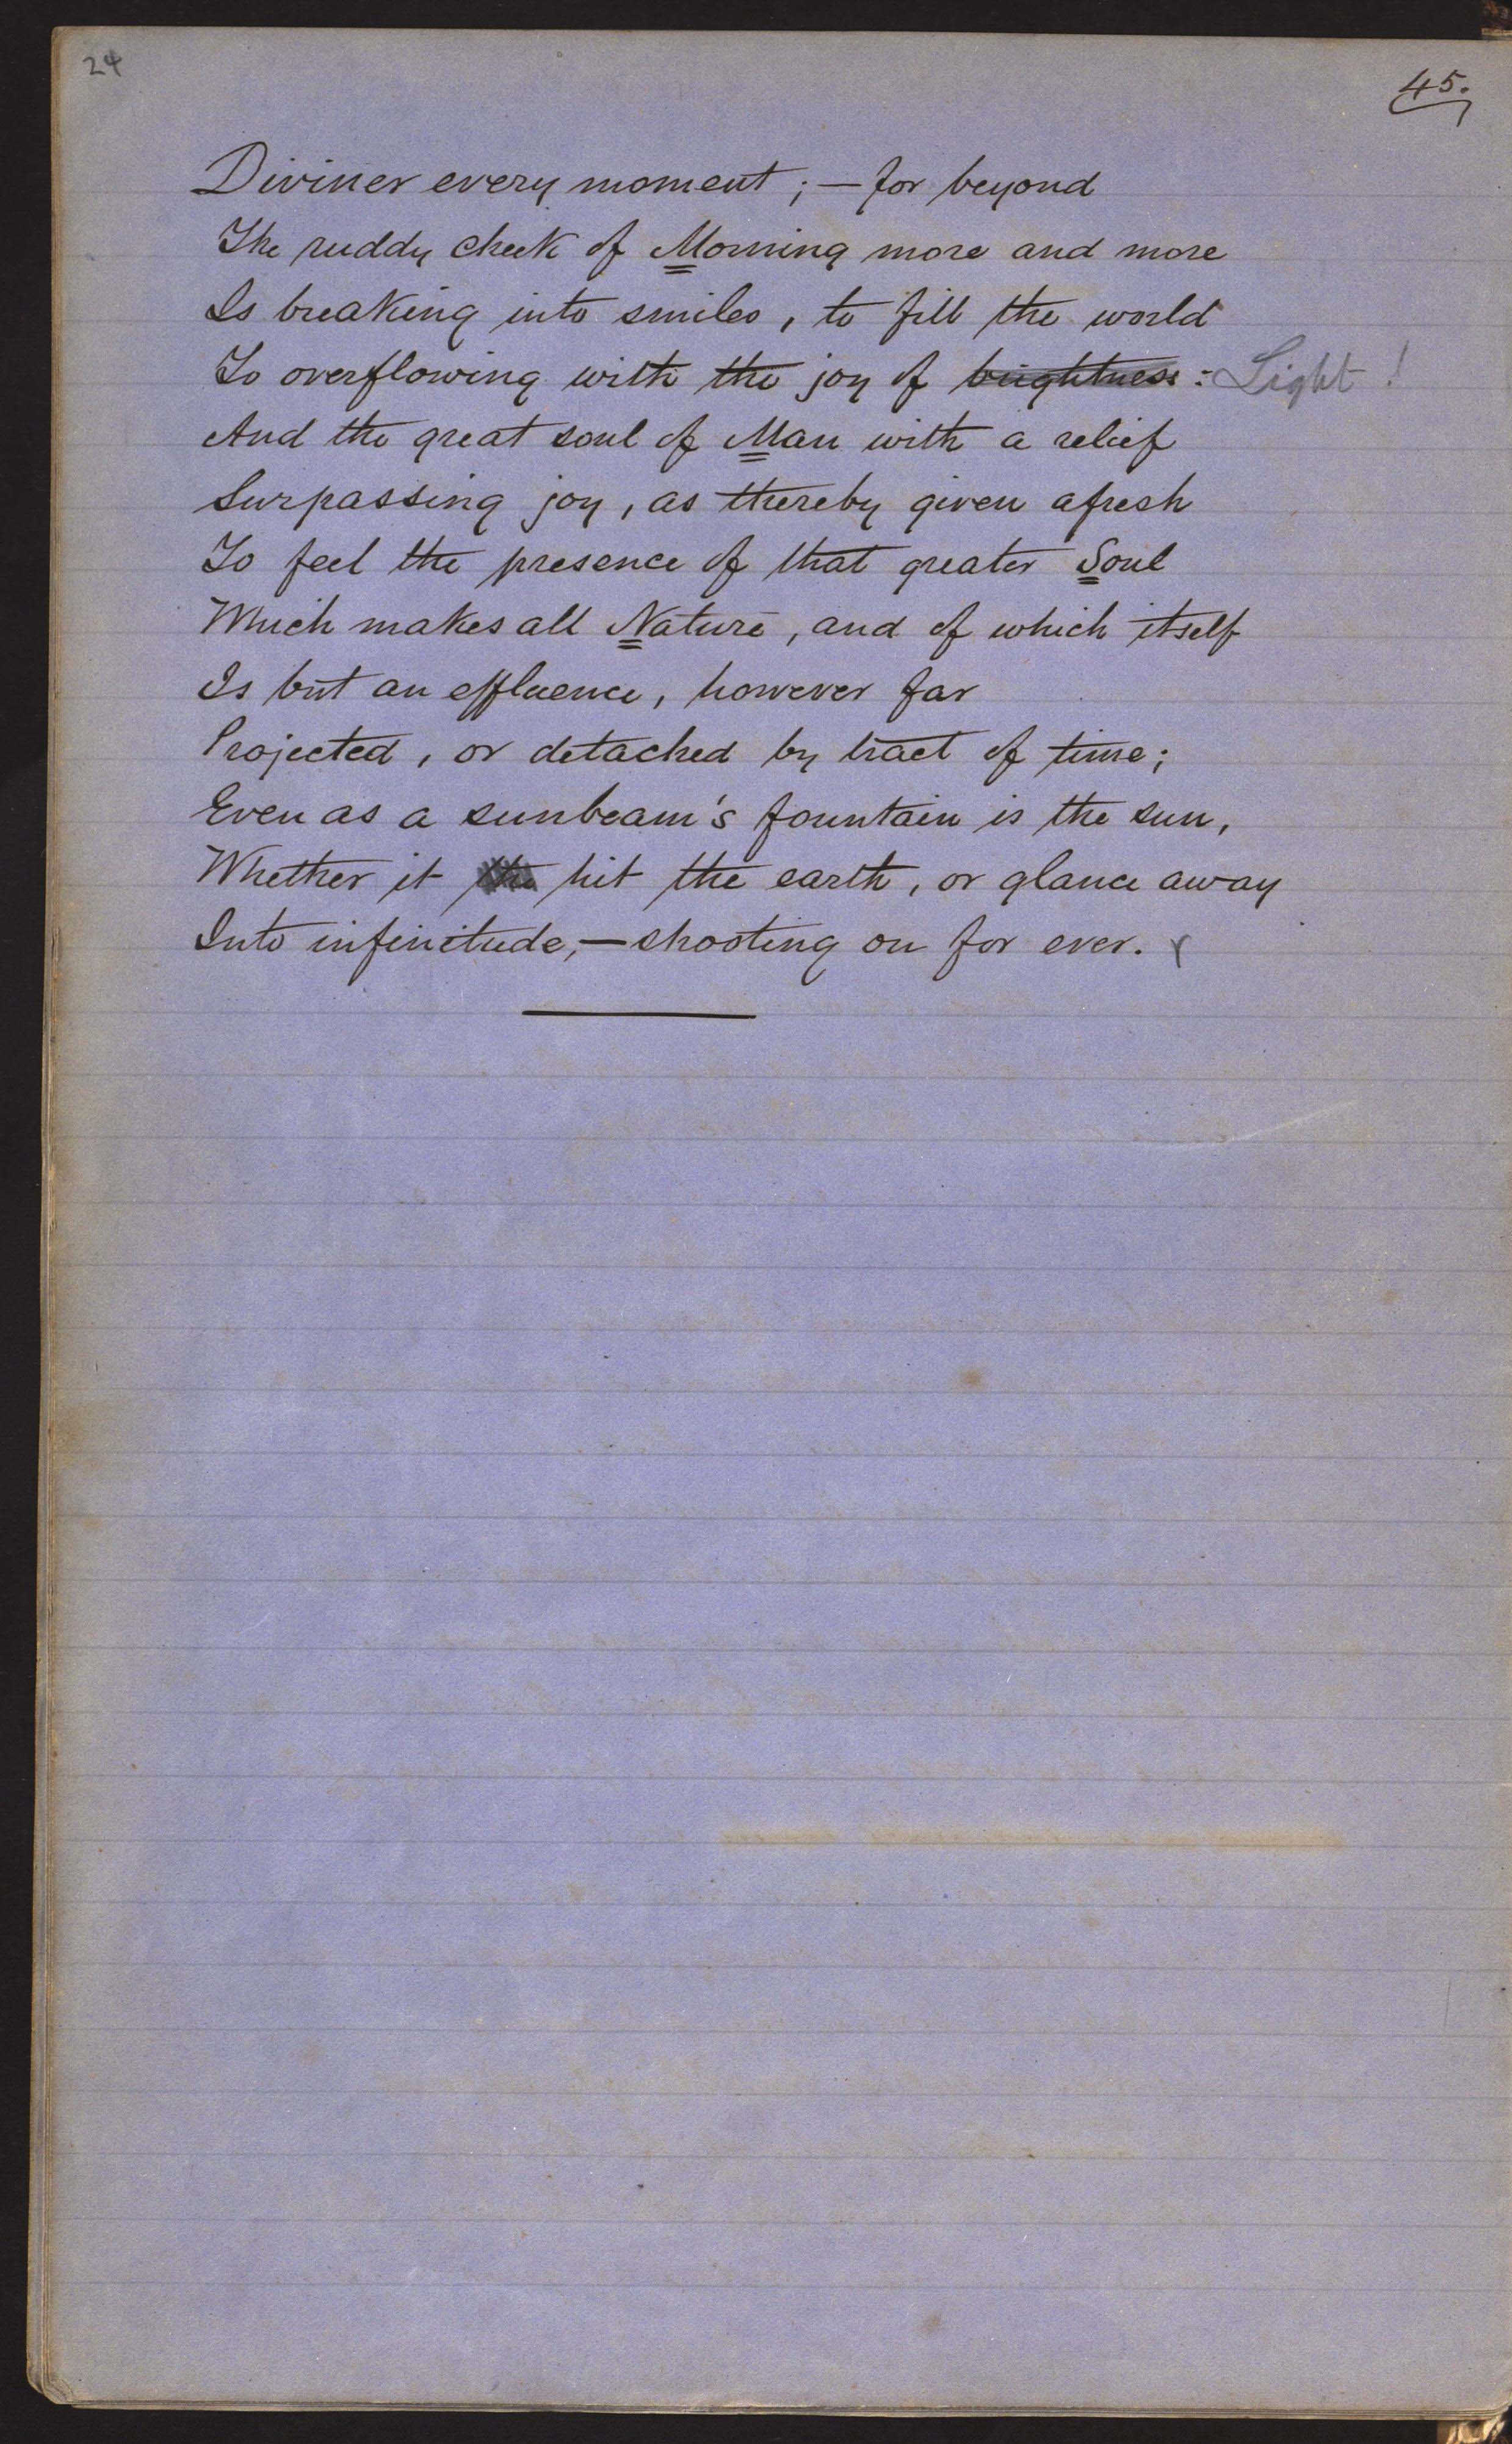 24
45.
Diviner every moment; — for beyond
The ruddy cheek of Morning more and more
Is breaking into smiles, to fill the world
To overflowing with the joy of brightness: Light!
And the great soul of Man with a relief
Surpassing joy, as thereby given afresh
To feel the presence of that greater Soul
Which makes all Nature, and of which itself
Is but an effluence, however far
Projected, or detached by tract of time;
Even as a sunbeam's fountain is the sun,
Whether it the hit the earth, or glance away
Into infinitude, — shooting on for ever.